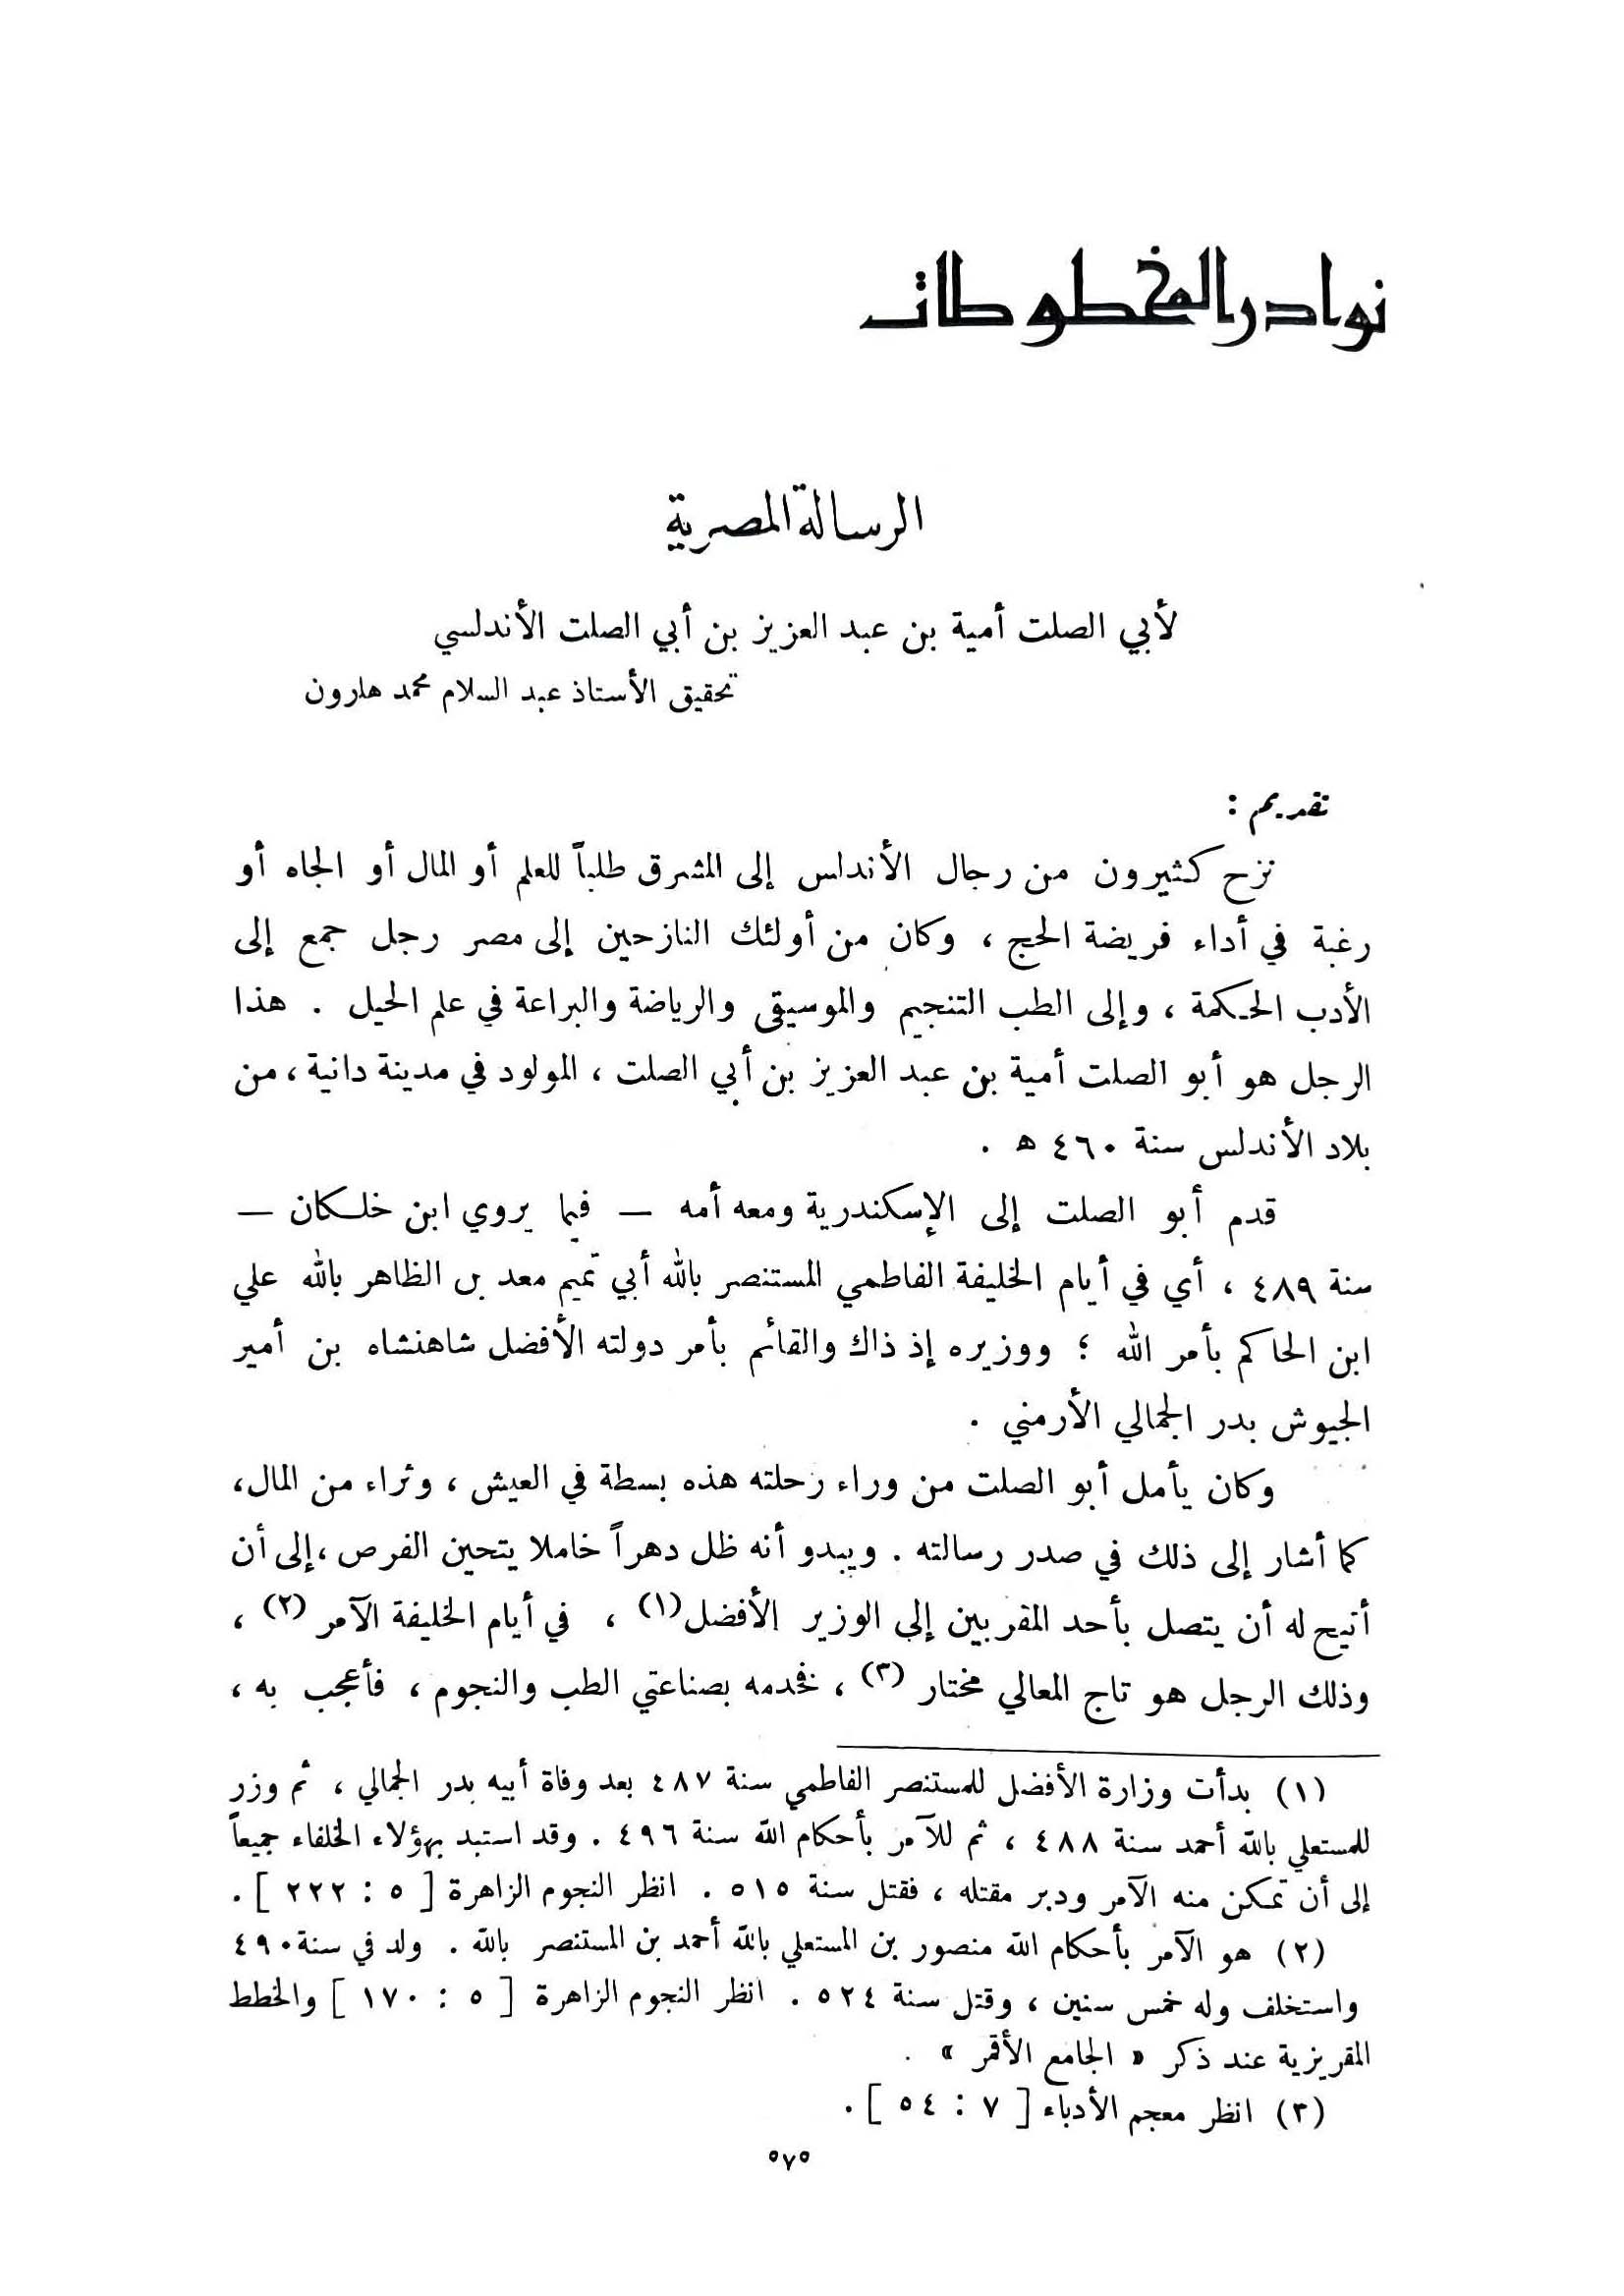 نوادر المخطوطات
الرسالة المصرية
لأبي الصلت أمية بن عبد العزيز بن أبي الصلت الأندلسي
تحقيق الأستاذ عبد السلام محمد هارون
تقديم :
نزح كثيرون من رجال الأندلس إلى المشرق طلباً للعلم أو المال أو الجاه أو
رغبة في أداء فريضة الحج ، وكان من أولئك النازحين إلى مصر رجل جمع إلى
الأدب الحكمة ، وإلى الطب التنجيم والموسيقى والرياضة والبراعة في علم الحيل . هذا
الرجل هو أبو الصلت أمية بن عبد العزيز بن أبي الصلت ، المولود في مدينة دانية ، من
بلاد الأندلس سنة ٤٦٠ ه .
قدم أبو الصلت إلى الإسكندرية ومعه أمه — فيما يروي ابن خلكان —
سنة ٤٨٩ ، أي في أيام الخليفة الفاطمي المستنصر بالله أبي تميم معد بن الظاهر بالله علي
ابن الحاكم بأمر الله ؛ ووزيره إذ ذاك والقائم بأمر دولته الأفضل شاهنشاه بن أمير
الجيوش بدر الجمالي الأرمني .
وكان يأمل أبو الصلت من وراء رحلته هذه بسطة في العيش ، وثراء من المال ،
كما أشار إلى ذلك في صدر رسالته . ويبدو أنه ظل دهراً خاملا يتحين الفرص ، إلى أن
أتيح له أن يتصل بأحد المقربين إلى الوزير الأفضل (١) ، في أيام الخليفة الآمر (٢) ،
وذلك الرجل هو تاج المعالي مختار (٣) ، فخدمه بصناعتي الطب والنجوم ، فأعجب به ،
(١) بدأت وزارة الأفضل للمستنصر الفاطمي سنة ٤٨٧ بعد وفاة أبيه بدر الجمالي ، ثم وزر
للمستعلي بالله أحمد سنة ٤٨٨ ، ثم للآمر بأحكام الله سنة ٤٩٦ . وقد استبد بهؤلاء الخلفاء جميعاً
إلى أن تمكن منه الآمر ودبر مقتله ، فقتل سنة ٥١٥ . انظر النجوم الزاهرة [ ٥ : ٢٢٢ ] .
(٢) هو الآمر بأحكام الله منصور بن المستعلي بالله أحمد بن المستنصر بالله . ولد في سنة ٤٩٠
واستخلف وله خمس سنين ، وقتل سنة ٥٢٤ . انظر النجوم الزاهرة [ ٥ : ١٧٠ ] والخطط
المقريزية عند ذكر « الجامع الأقمر » .
(٣) انظر معجم الأدباء [ ٧ : ٥٤ ] .
٥٧٥